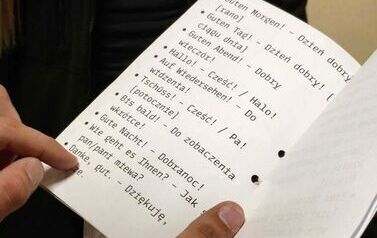 Guten Morgen! – Dzień dobry
[rano]
• Guten Tag! – Dzień dobry! [
ciągu dnia]
• Guten Abend! – Dobry
wieczór!
• Hallo! – Cześć! / Halo!
• Auf Wiedersehen! – Do
widzenia!
• Tschüss! – Cześć! / Pa!
[potocznie]
• Bis bald! – Do zobaczenia
wkrótce!
• Gute Nacht! – Dobranoc!
• Wie geht es Ihnen? – Jak s
pan/pani miewa?
• Danke, gut. – Dziękuję,